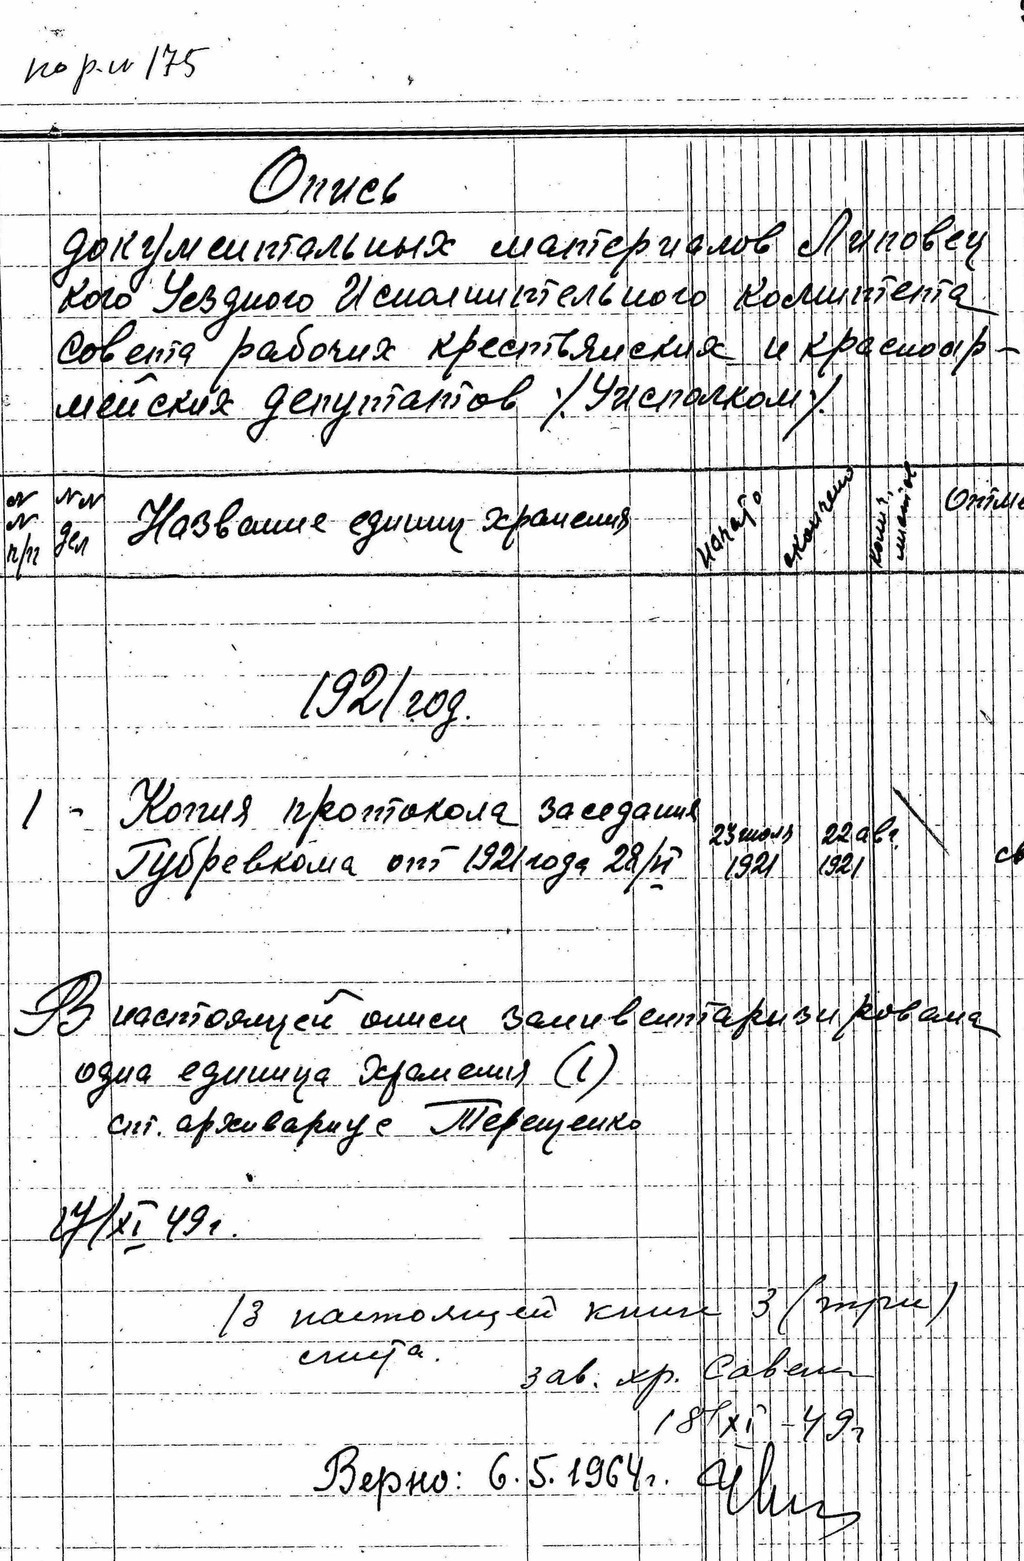 175
Опись
документальных материалов Липовец
кого Уездного Исполнительного комитета
совета рабочих крестьянских и красноар-
мейских депутатов /Уисполком/.
№ № п/п
№№ дел
Название единиц хранения
начато
окончено
колич. листов
Отме
1921 год.
1 - Копия протокола заседания
Губревкома от 1921 года 28/VI
23 июля 1921
22 авг. 1921
св
В настоящей описи заинвентаризирована
одна единица хранения (1)
ст. архивариус Терещенко
17/XI 49г.
В настоящей книге 3 (три)
листа.
зав. хр.
18/XI -49г
Верно: 6.5.1964г.